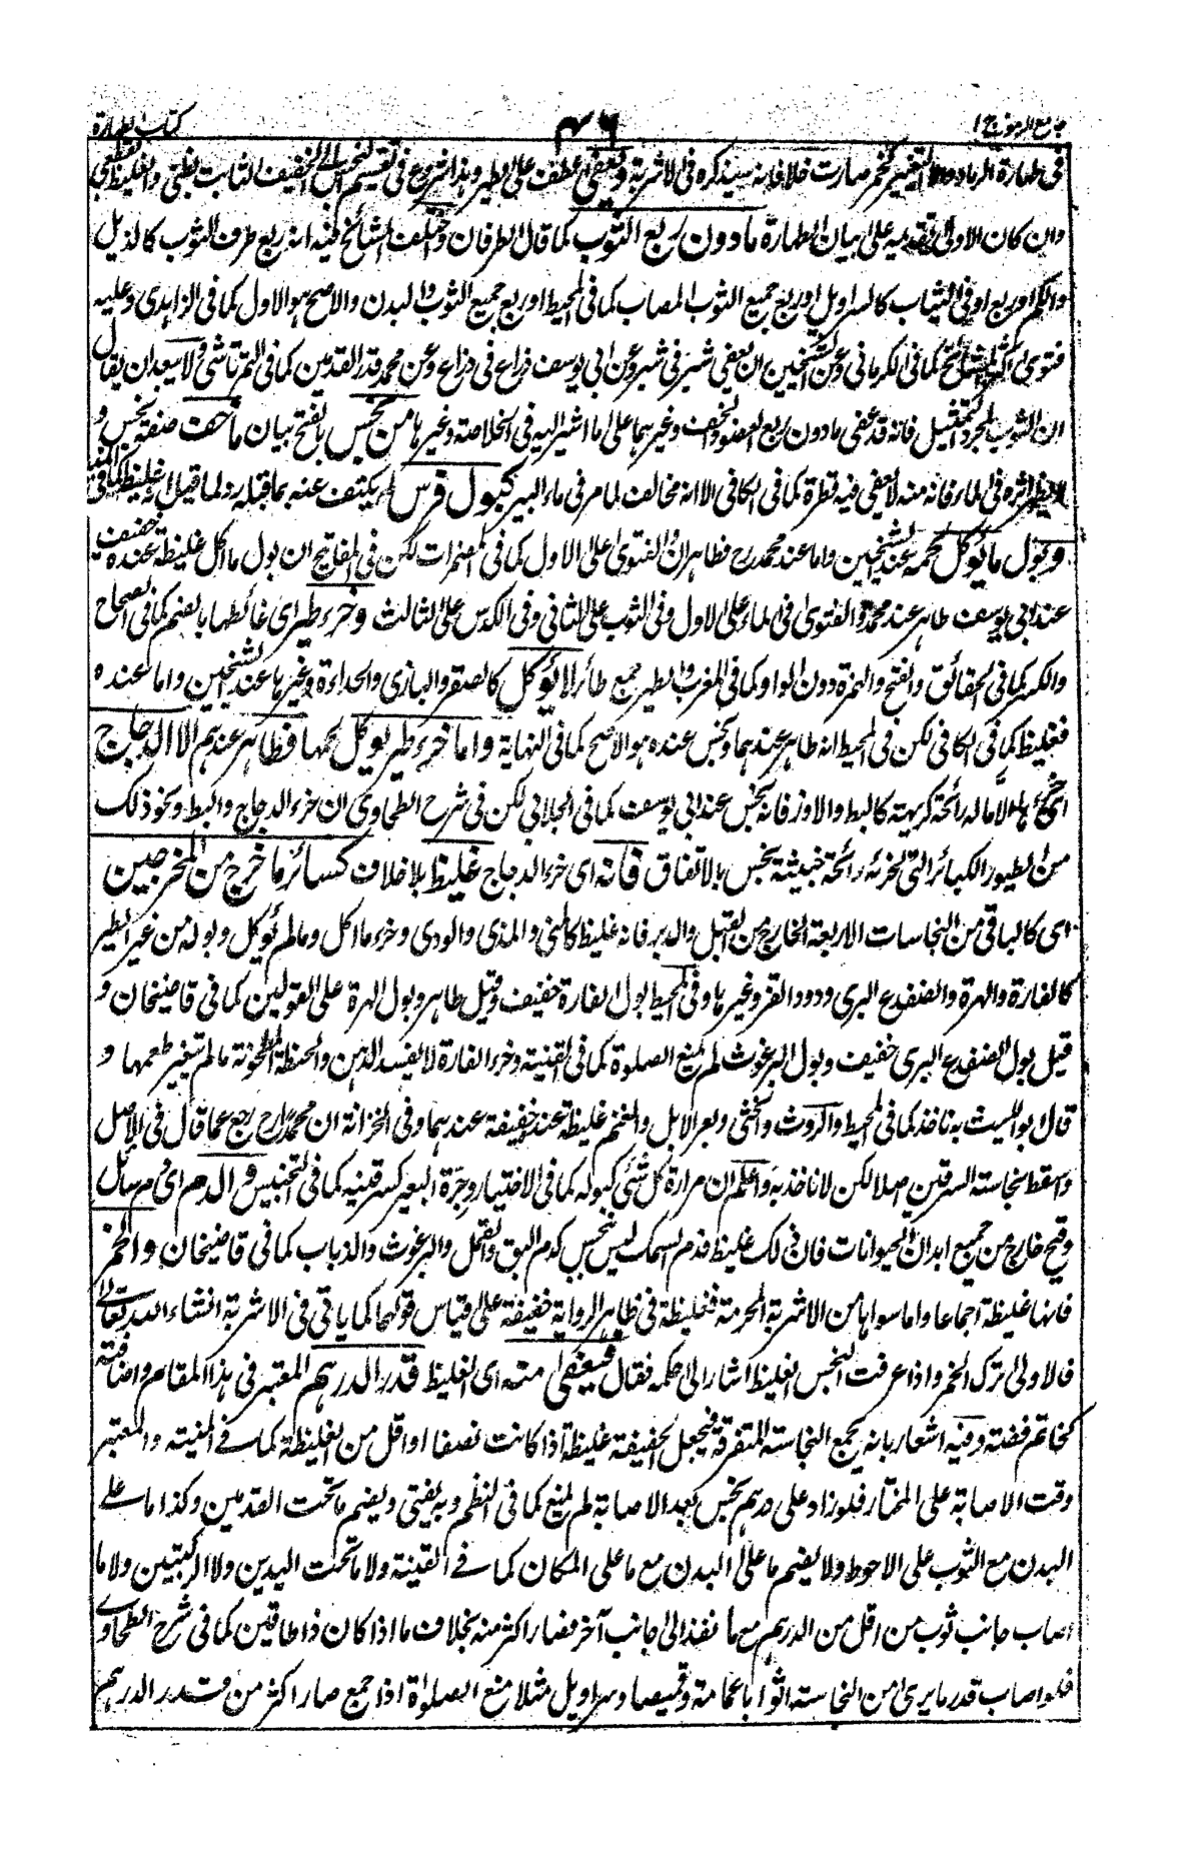 جامع الرموز ج ١
٤٦
كتاب الطهارة
في طهارة الرماد التغيير كخمر صارت خلا فانه سيذكره في الاشربة ويعفى عطف على يطهر وهذا شروع في تقسيم النجس الى الخفيف الثابت بظني والغليظ بقطعي
وان كان الاولى تقديمه على بيان الطهارة مادون ربع الثوب كما قال الطرفان واختلف المشائخ فيه انه ربع طرف الثوب كالذيل
والكم او ربع او في الثياب كالسراويل او ربع جميع الثوب المصاب كما في المحيط او ربع جميع الثوب والبدن والاصح هو الاول كما في الزاهدي وعليه
فتوى اكثر المشائخ كما في الكرماني وعن الشيخين ان يعفى شبر في شبر وعن ابي يوسف ذراع في ذراع وعن محمد قدر القدمين كما في التمرتاشي ولا يبعد ان يقال
ان الثوب لمجرد التمثيل فانه قد عفى مادون ربع العضو والخف وغيرهما على ما اشير اليه في الخلاصة وغيرها من نجس بالفتح بيان ما خف صفة نجس و
لا يظهر اثره في الماء فانه منه لا يعفى فيه قطرة كما في الكافي الا انه مخالف لما مر في ماء البير كبول فرس لم يكتف عنه بما قبله رد لما قيل انه غليظ كما في
وبول ما يؤكل لحمه عند الشيخين واما عند محمد رح فطاهران والفتوى على الاول كما في المضمرات لكن في المفاتيح ان بول ما اكل غليظة عنده خفيف
عند ابي يوسف طاهر عند محمد والفتوى في الماء على الاول وفي الثوب على الثاني وفي الكدس على الثالث وخرء طير اى غائطها بالضم كما في الصحاح
والكسر كما في الحقائق والفتح والهمزة دون الواو كما في المغرب والطير جمع طائر لا يؤكل كالصقر والبازي والحداءة وغيرها عند الشيخين واما عنده
فغليظ كما في الكافي لكن في المحيط انه طاهر عندهما ونجس عنده هو الاصح كما في النهاية واما خرء طير يوكل لحمها فطاهر عندهم الا الدجاج
اى خرءها والا ماله رائحة كريهة كالبط والاوز فانه نجس عند ابي يوسف كما في الجلابي لكن في شرح الطحاوي ان خرء الدجاج والبط ونحو ذلك
من الطيور الكبائر التي لخرئه رائحة خبيثة نجس بالاتفاق فانه اى خرء الدجاج غليظ بلا خلاف كسائر ما خرج من المخرجين
اى كالباقي من النجاسات الاربعة الخارج من القبل والدبر فانه غليظ كالمني والمذي والودي وخرء ما اكل وما لم يؤكل وبوله من غير الطير
كالفارة والهرة والضفدع البرى ودود القز وغيرها وفي المحيط بول الفارة خفيف وقيل طاهر وبول الهرة على القولين كما في قاضيخان و
قيل بول الضفدع البرى خفيف وبول البرغوث لم يمنع الصلوة كما في القنية وخرء الفارة لا يفسد الدهن والحنطة المطحونة مالم يتغير طعمها و
قال ابو الليث به ناخذ كما في المحيط والروث والخثى وبعر الابل والغنم غليظة عنده خفيفة عندهما وفي الخزانة ان محمدا رح رجع عما قال في الاصل
واسقط نجاسة السرقين اصلا لكن لا ناخذ به واعلم ان مرارة كل شئ كبوله كما في الاختيار وجرة البعير كسرقينه كما في التجنيس والدم اى دم سائل
وقيح خارج من جميع ابدان الحيوانات فان ذلك غليظ فدم السمك ليس بنجس كدم البق والقمل والبرغوث والذباب كما في قاضيخان والخمر
فانها غليظة اجماعا واما سواها من الاشربة المحرمة فغليظة في ظاهر الرواية خفيفة على قياس قولهما كما ياتي في الاشربة انشاء الله تعالى
فالاولى ترك الخمر واذا عرفت النجس الغليظ اشار الى حكمه فقال فيعفى منه اى الغليظ قدر الدرهم المعتبر في هذا المقام واضافته
كخاتم فضة وفيه اشعار بانه يجمع النجاسة المتفرقة فيجعل الخفيفة غليظة اذا كانت نصفا او اقل من الغليظة كما في المنية والمعتبر
وقت الاصابة على المختار فلو زاد على درهم نجس بعد الاصابة لم يمنع كما في النظم وبه يفتى ويضم ما تحت القدمين وكذا ما على
البدن مع الثوب على الاحوط ولا يضم ما على البدن مع ما على المكان كما في القنية ولا ما تحت اليدين ولا الركبتين ولا ما
اصاب جانب ثوب من اقل من الدرهم مع ما نفذ الى جانب آخر فصار اكثر منه بخلاف ما اذا كان ذا طاقين كما في شرح الطحاوى
فلو اصاب قدر ما يرى من النجاسة اثوابا عمامة وقميصا وسراويل مثلا منع الصلوة اذا جمع صار اكثر من قدر الدرهم